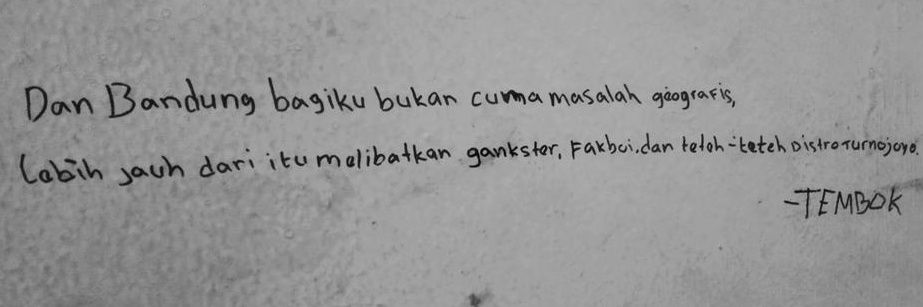 Dan Bandung bagiku bukan cuma masalah geografis,
Lebih jauh dari itu melibatkan gankster, Fakboi, dan teteh-teteh Distro Turnojoyo.
-TEMBOK